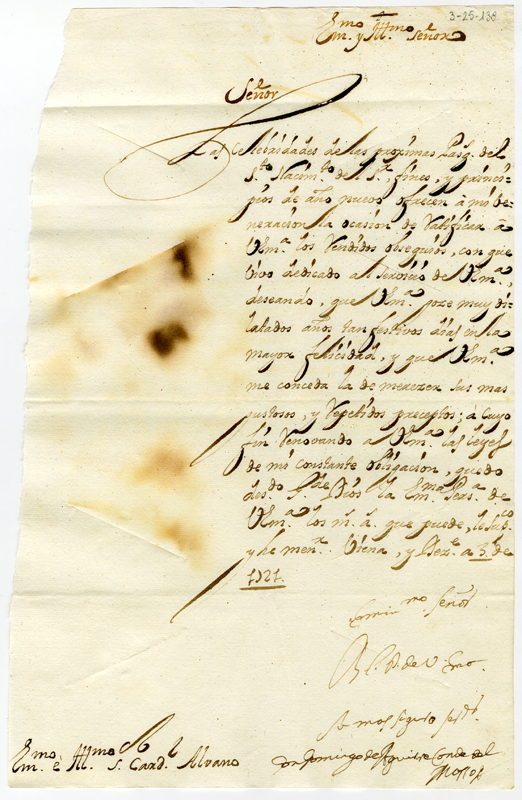 3-25-138
Em.mo y Ill.mo Señor
Señor
Las Celebridades de las proximas Pasq.s del
S.to Nacim.to del S.r, fines, y princi-
pios de año nuevo ofrecen à mi ve-
neracion la ocasion de Ratificar à
VEm.a los Rendidos obsequios, con que
Vivo dedicado al Servicio de VEm.a,
deseando, que VEm.a goze muy di-
latados años tan festivos dias en la
mayor felicidad, y que VEm.a
me conceda la de merezer sus mas
gustosos, y Repetidos preceptos; à Cuyo
fin Renovando a VEm.a las leyes
de mi constante obligacion, quedo
des.do G.de Dios la Em.ma Pers.a de
VEm.a los m.s a.s que puede,
y he men.r Viena, y Dez.e a 3 de
1721.
Emin.mo Señor
B. L. M. de V. Em.a
Su mas seguro ser.or
Don Domingo de Aguirre Conde del
Em.mo è Ill.mo S.r S. Card.l Alvano